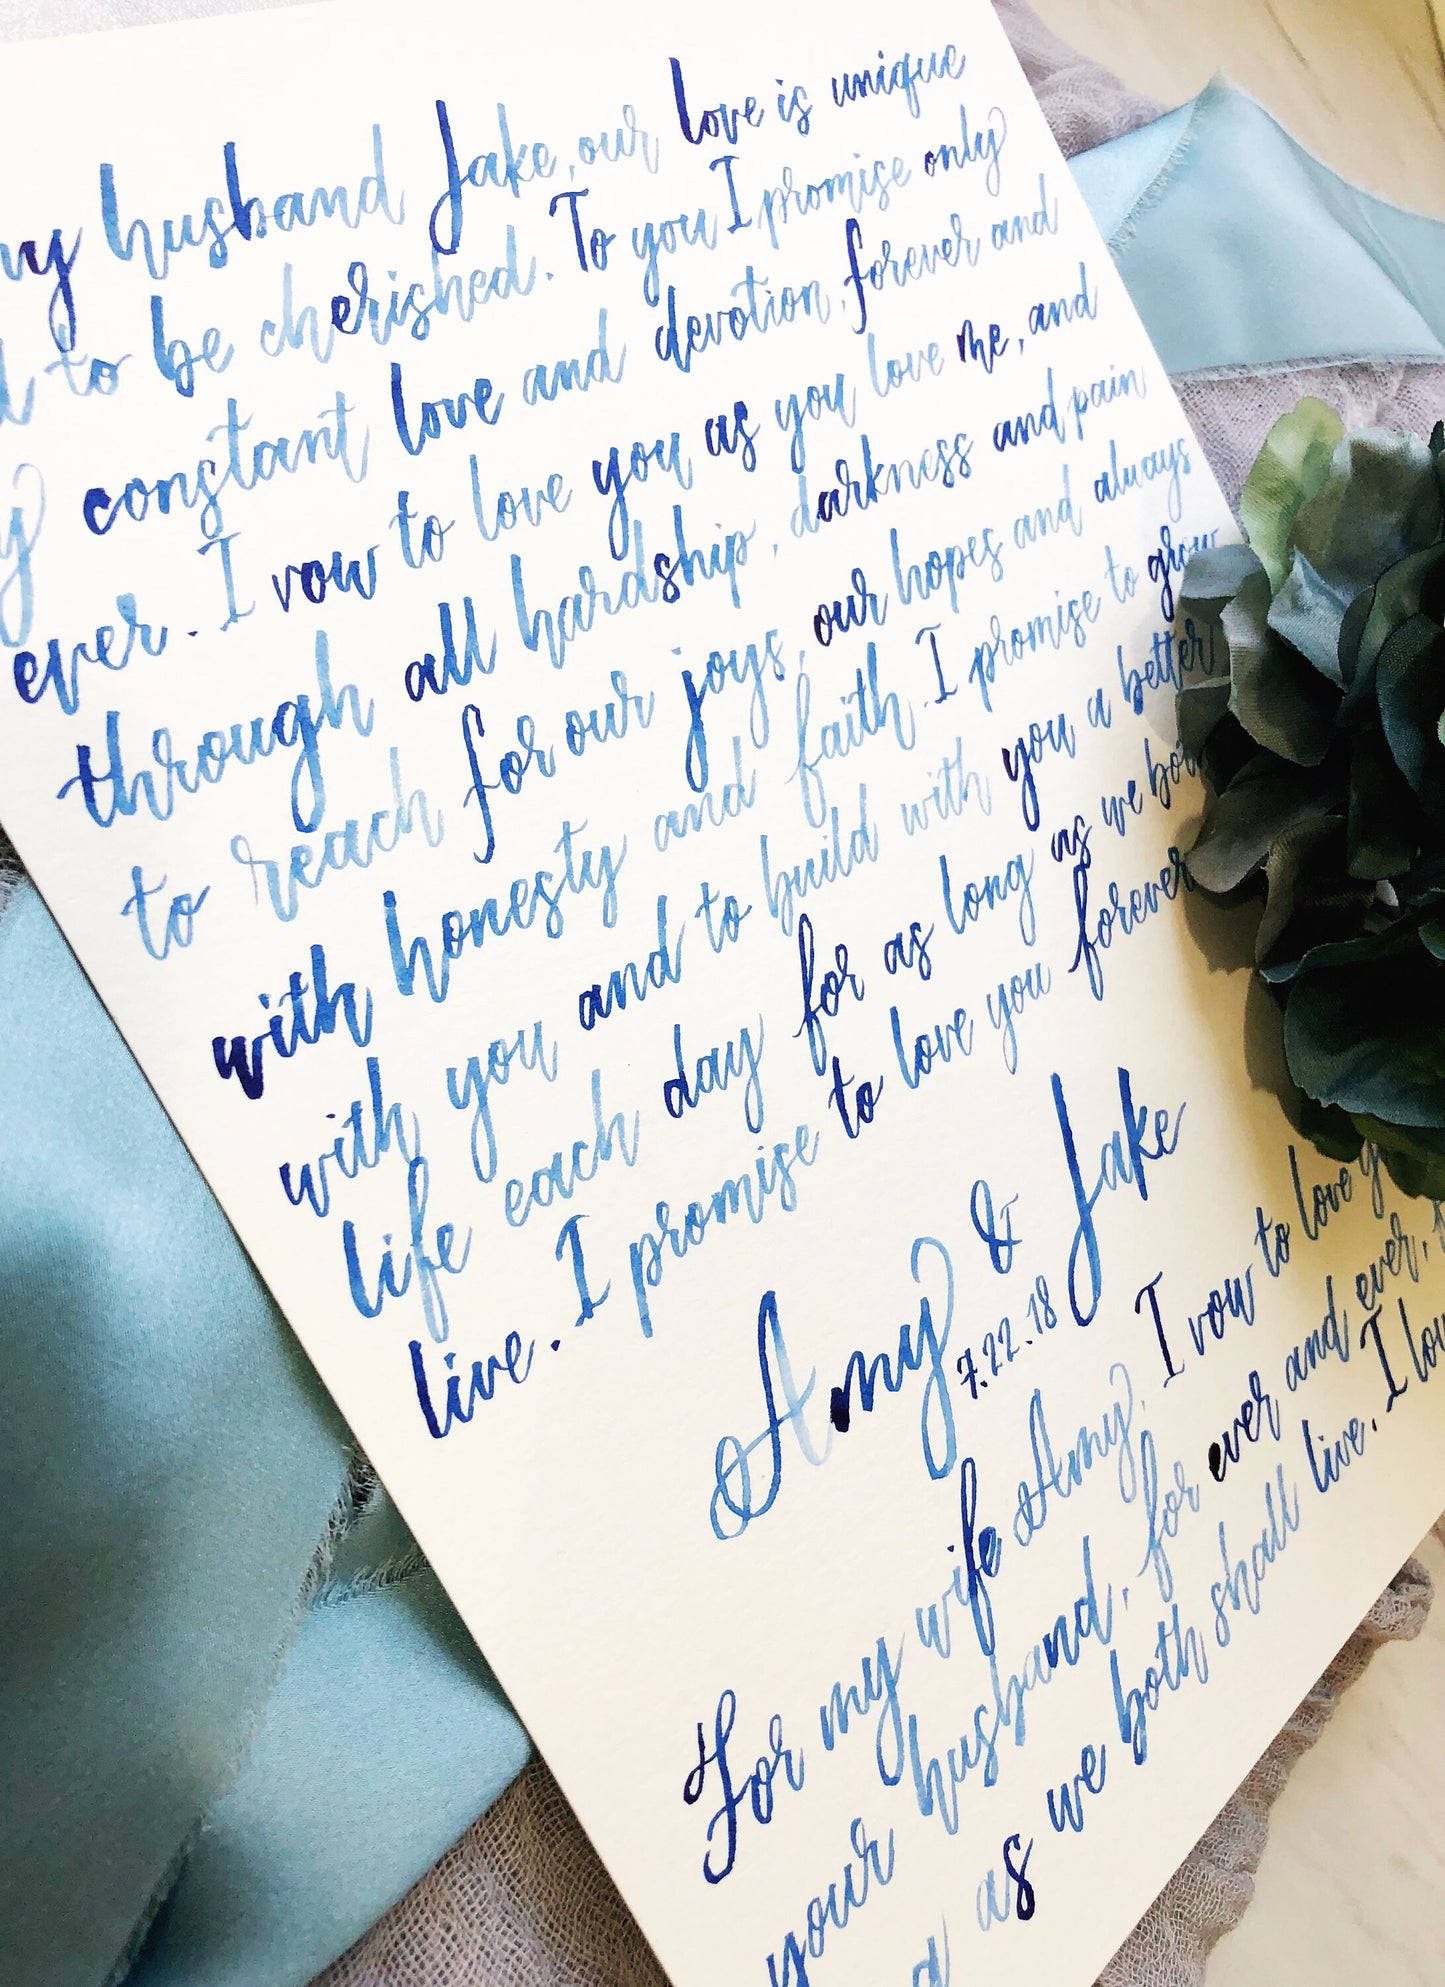 husband Jake, our love is unique
to be cherished. To you I promise only
constant love and devotion, forever and
ever. I vow to love you as you love me, and
through all hardship, darkness and pain
to reach for our joys, our hopes and always
with honesty and faith. I promise to grow
with you and to build with you a better
life each day for as long as we both
live. I promise to love you forever
Amy & Jake
7.22.18
For my wife Amy, I vow to love
your husband, for ever and ever,
as we both shall live. I